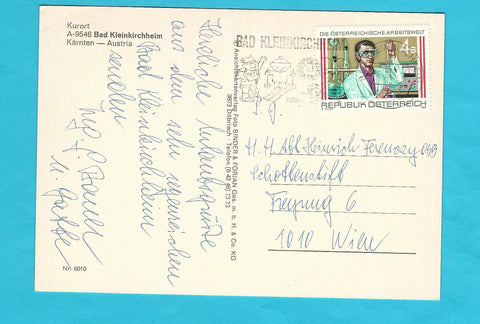 Kurort
A-9546 Bad Kleinkirchheim
Kärnten – Austria
Herzliche Urlaubsgrüße
aus dem sehr regenreichen
Bad Kleinkirchheim
senden
Nr. 6010
Ansichtskartenverlag Foto BINDER & FORIAN Ges. m. b. H. & Co. KG
9873 Döbriach · Telefon (0 42 46) 73 73
BAD KLEINKIRCH
DIE ÖSTERREICHISCHE ARBEITSWELT
4S
REPUBLIK ÖSTERREICH
H. H. Abt Heinrich Ferenczy OSB
Schottenstift
Freyung 6
1010 Wien